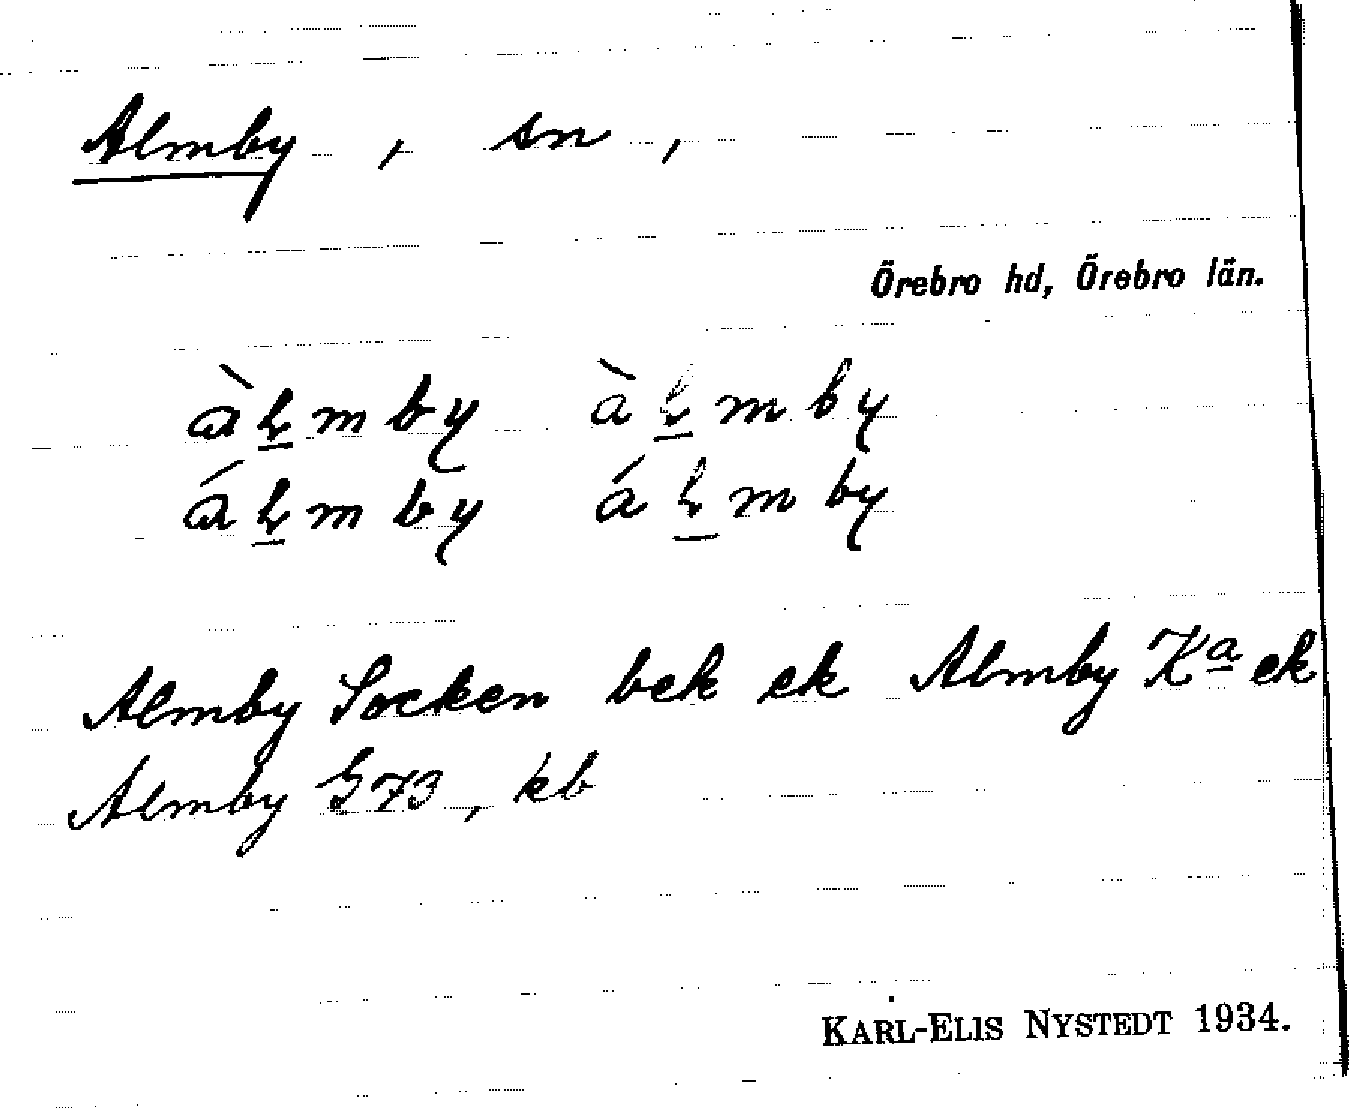 Almby, sn,
Örebro hd, Örebro län.
àlmby àlmby
álmby álmby
Almby Socken bek ek Almby Ka ek
Almby G73, kb
KARL-ELIS NYSTEDT 1934.